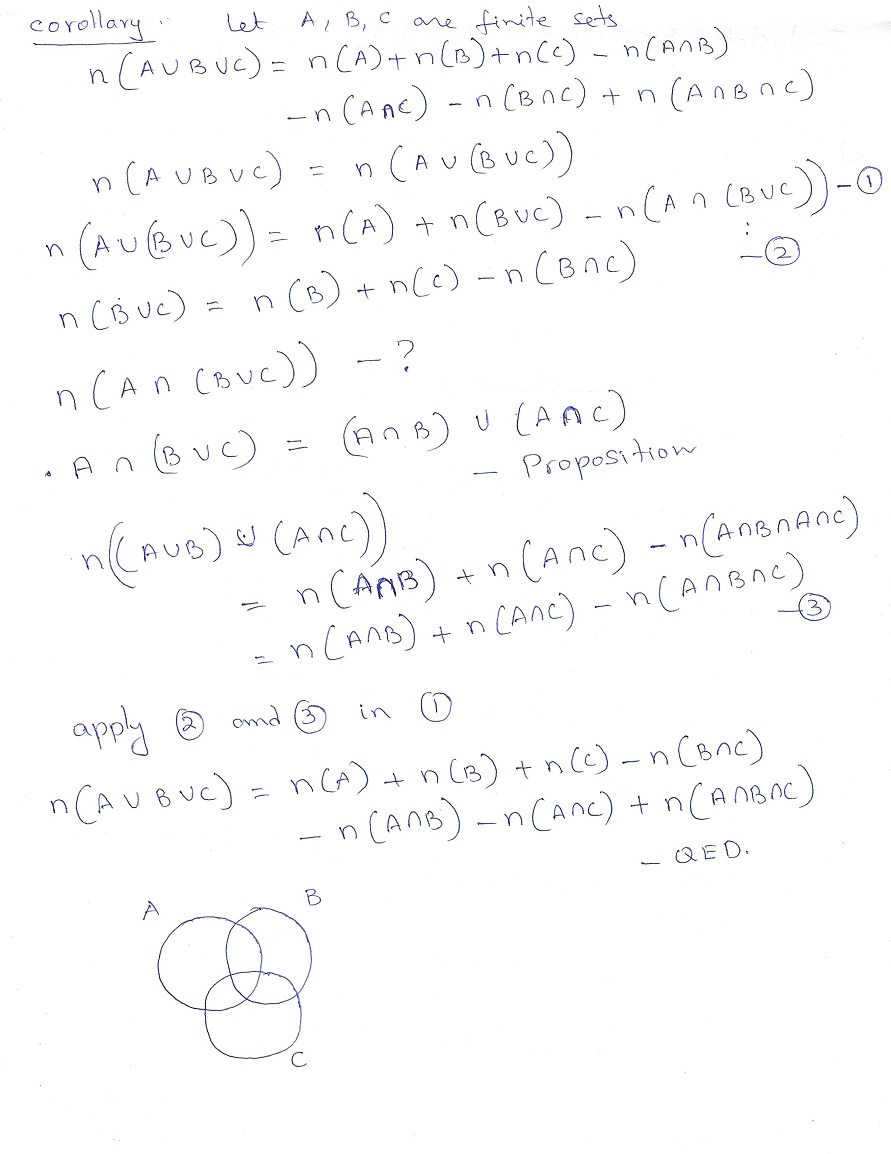 corollary. Let A, B, C are finite sets
n(A∪B∪C) = n(A)+n(B)+n(C) - n(A∩B)
-n(A∩C) - n(B∩C) + n(A∩B∩C)
n(A∪B∪C) = n(A∪(B∪C))
n(A∪(B∪C)) = n(A) + n(B∪C) - n(A∩(B∪C)) -①
n(B∪C) = n(B) + n(C) - n(B∩C) -②
n(A∩(B∪C)) - ?
. A∩(B∪C) = (A∩B) ∪ (A∩C)
- Proposition
n((A∪B) ∪ (A∩C))
= n(A∩B) + n(A∩C) - n(A∩B∩A∩C)
= n(A∩B) + n(A∩C) - n(A∩B∩C) -③
apply ② and ③ in ①
n(A∪B∪C) = n(A) + n(B) + n(C) - n(B∩C)
- n(A∩B) - n(A∩C) + n(A∩B∩C)
- QED.
A B
C